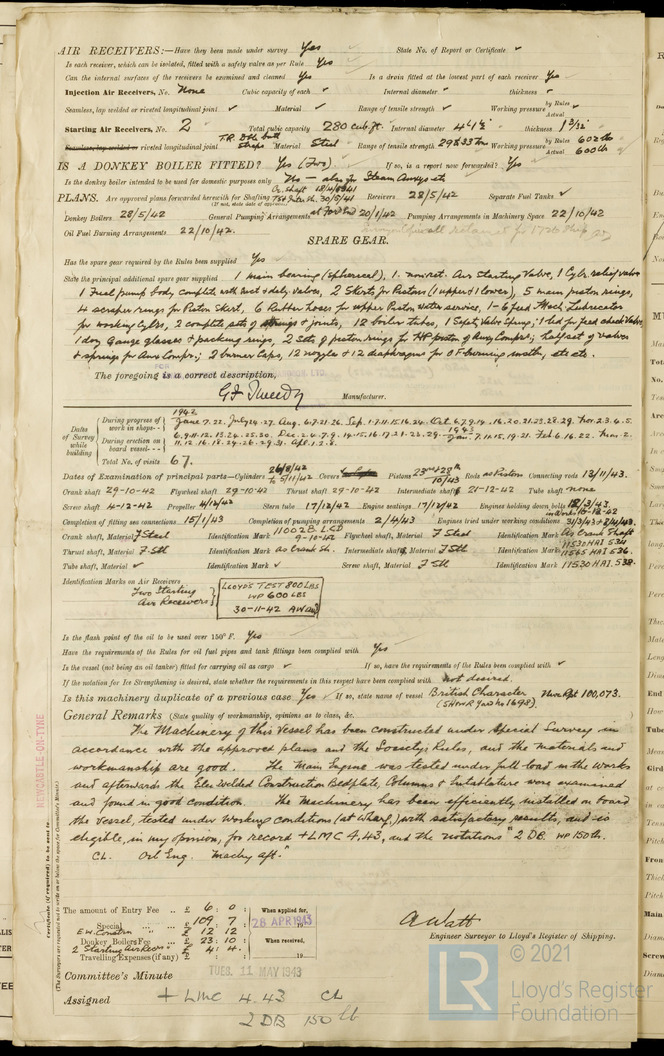 AIR RECEIVERS:—Have they been made under survey Yes State No. of Report or Certificate
Is each receiver, which can be isolated, fitted with a safety valve as per Rule Yes
Can the internal surfaces of the receivers be examined and cleaned Yes Is a drain fitted at the lowest part of each receiver Yes
Injection Air Receivers, No. None Cubic capacity of each Internal diameter thickness
Seamless, lap welded or riveted longitudinal joint Material Range of tensile strength Working pressure by Rules Actual
Starting Air Receivers, No. 2 Total cubic capacity 280 cub. ft. Internal diameter 4'1½" thickness 1 3/32"
Seamless, lap welded or riveted longitudinal joint T.R. Dble butt straps Material Steel Range of tensile strength 29 & 33 tons Working pressure by Rules 602 lb Actual 600 lb
IS A DONKEY BOILER FITTED? Yes (Two) If so, is a report now forwarded? Yes
Is the donkey boiler intended to be used for domestic purposes only No — also for Steam Auxys etc
PLANS. Are approved plans forwarded herewith for Shafting Receivers 28/5/42 Separate Fuel Tanks
(If not, state date of approval)
Donkey Boilers 28/5/42 General Pumping Arrangements at For'd End 20/1/42 Pumping Arrangements in Machinery Space 22/10/42
Oil Fuel Burning Arrangements 22/10/42.
SPARE GEAR.
Has the spare gear required by the Rules been supplied Yes
State the principal additional spare gear supplied 1 main bearing (spherical), 1. nonret. Air Starting Valve, 1 Cylr. relief valve
1 Fuel pump body complete with suct & dely. valves, 2 Skirts for Pistons (1 upper & 1 lower), 5 main piston rings,
4 scraper rings for Piston Skirt, 6 Rubber hoses for upper Piston water service, 1-6 feed Mech. Lubricator
for working Cylrs, 2 complete sets of rings & joints, 12 boiler tubes, 1 Safety Valve Spring, 1 lid for feed check Valve,
1 doz Gauge glasses & packing rings, 2 Sets of piston rings for HP piston of Auxy Compr.; half set of valves
& springs for Aux Compr.; 2 burner Caps, 12 nozzles & 12 diaphragms for O F burning instln, etc etc.
The foregoing is a correct description,
G F Tweedy Manufacturer.
Dates of Survey while building
During progress of work in shops 1942 June 7. 22. July 24. 27. Aug. 6. 7. 21. 26. Sep. 1. 7. 11. 15. 16. 24. Oct 6. 7. 9. 14. 16. 20. 21. 23. 28. 29. Nov. 2. 3. 4. 5.
During erection on board vessel 6. 9. 11. 12. 13. 24. 25. 30. Dec. 2. 4. 7. 9. 14. 15. 16. 17. 21. 23. 29. 1943 Jan. 7. 11. 15. 19. 21. Feb 6. 16. 22. Mar. 2.
11. 12. 16. 18. 24. 26. 29. 31. Apl. 1. 2. 8.
Total No. of visits 67.
Dates of Examination of principal parts—Cylinders 26/8/42 to 5/11/42 Covers Pistons Rods as Piston Connecting rods 12/11/43.
Crank shaft 29-10-42 Flywheel shaft 29-10-42 Thrust shaft 29-10-42 Intermediate shafts 21-12-42 Tube shaft none
Screw shaft 4-12-42 Propeller 4/12/42 Stern tube 17/12/42 Engine seatings 17/12/42 Engines holding down bolts 12/3/43.
Completion of fitting sea connections 15/1/43 Completion of pumping arrangements 2/4/43 Engines tried under working conditions 31/3/43 & 2/4/43.
Crank shaft, Material F Steel Identification Mark 11002B LCD 9-10-42 Flywheel shaft, Material F Steel Identification Mark As Crank Shaft
Thrust shaft, Material F. Stl Identification Mark as Crank Sh. Intermediate shafts, Material F. Stl Identification Marks 11530 HAI 534 11565 HAI 536.
Tube shaft, Material Identification Mark Screw shaft, Material F Stl Identification Mark 11530 HAI 538.
Identification Marks on Air Receivers
Two Starting Air Receivers
LLOYDS TEST 800 LBS
WP 600 LBS
30-11-42 AW
Is the flash point of the oil to be used over 150° F. Yes
Have the requirements of the Rules for oil fuel pipes and tank fittings been complied with Yes
Is the vessel (not being an oil tanker) fitted for carrying oil as cargo If so, have the requirements of the Rules been complied with
If the notation for Ice Strengthening is desired, state whether the requirements in this respect have been complied with not desired.
Is this machinery duplicate of a previous case Yes If so, state name of vessel British Character Nwc Rpt 100,073.
(SH&WR Yard No 1698).
General Remarks (State quality of workmanship, opinions as to class, &c.
The Machinery of this Vessel has been constructed under Special Survey in
accordance with the approved plans and the Society's Rules, and the materials and
workmanship are good. The Main Engine was tested under full load in the works
and afterwards the Elec Welded Construction Bedplate, Columns & Entablature were examined
and found in good condition. The Machinery has been efficiently installed on board
the Vessel, tested under working conditions (at wharf,) with satisfactory results, and is
eligible, in my opinion, for record +LMC 4,43, and the notations "2 DB. WP 150 lb.
CL. Oil Eng. Machy aft."
NEWCASTLE-ON-TYNE
Certificate (if required) to be sent to
(The Surveyors are requested not to write on or below the space for Committee's Minute.)
The amount of Entry Fee .. £ 6 : 0 : When applied for,
Special .. £ 109 : 7 : 28 APR 1943
E W Constrn .. £ 12 : 12
Donkey Boiler Fee .. £ 23 : 10 : When received,
2 Starting Air Recvrs £ 4 : 4 :
Travelling Expenses (if any) £ : : 19
A Watt
Engineer Surveyor to Lloyd's Register of Shipping.
TUES. 11 MAY 1943
Committee's Minute
Assigned + LMC 4.43 CL
2 DB 150 lb
© 2021
LR
Lloyd's Register
Foundation